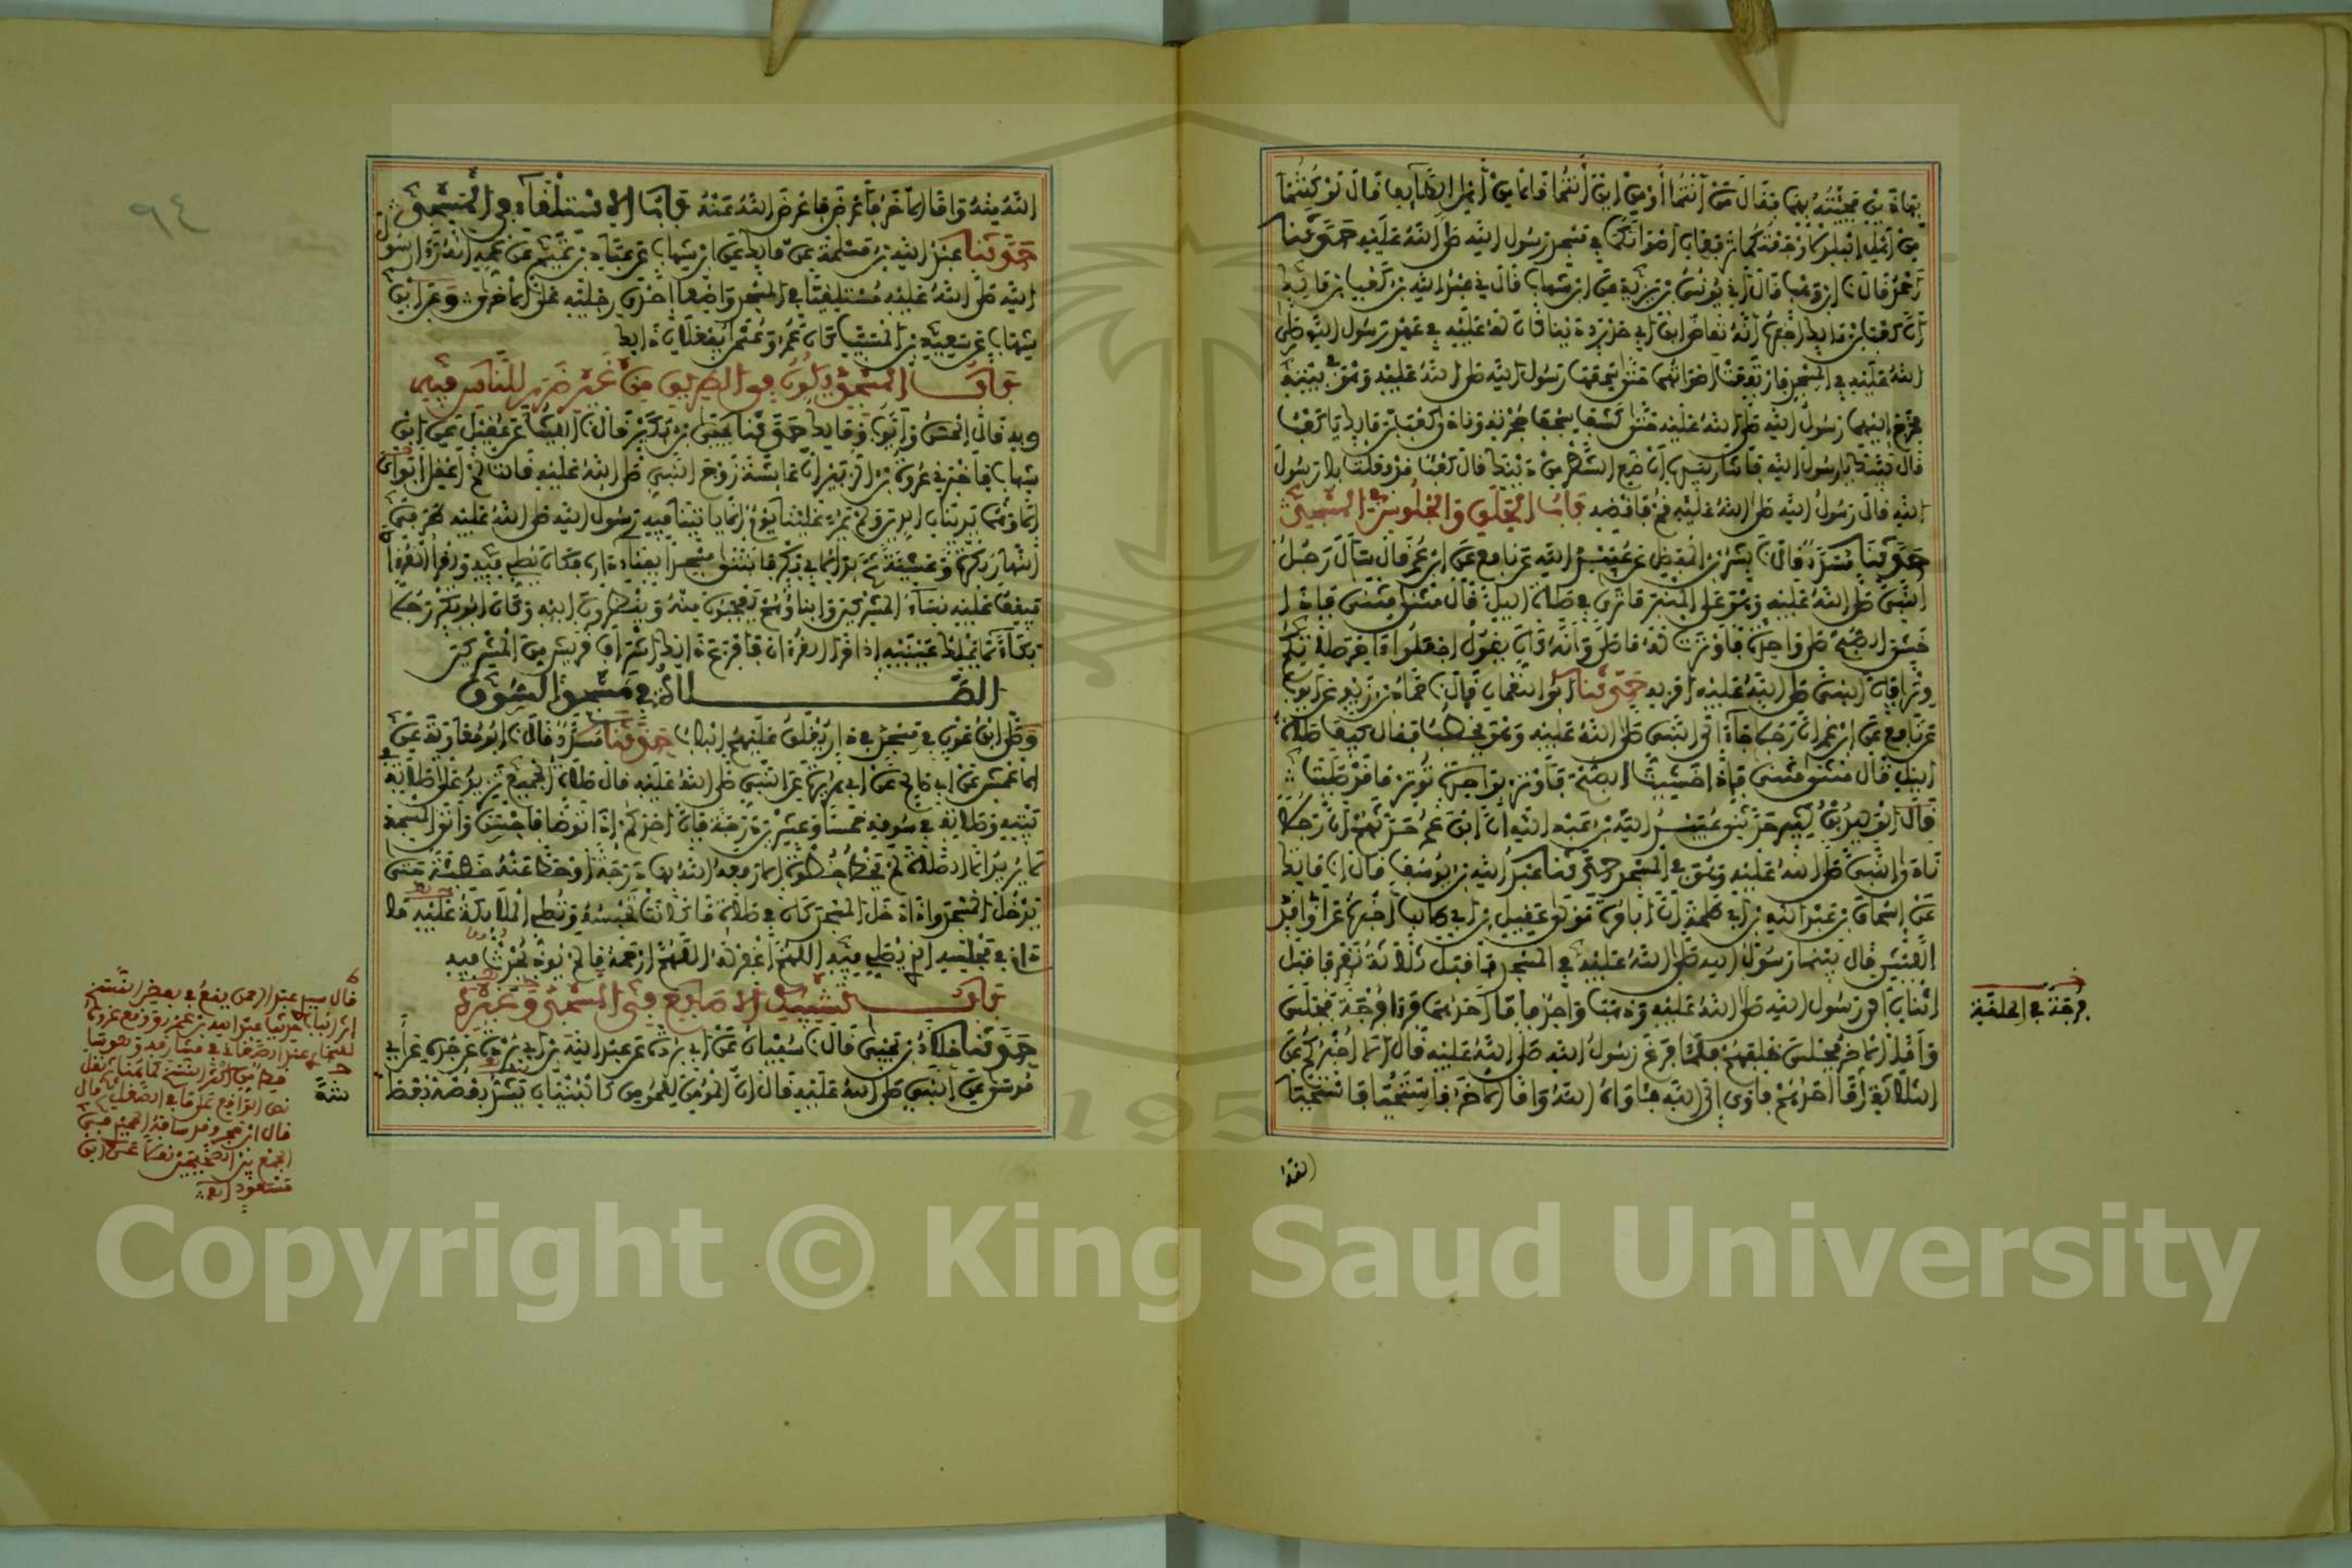 بهاذين فجئته بهما فقال من أنتما أو من اين أنتما قالا من أهل الطائف قال لو كنتما
من أهل البلد لأوجعتكما ترفعان أصواتكما في مسجد رسول الله صلى الله عليه حدثنا
أحمد قال نا ابن وهب قال أني يونس بن يزيد عن ابن شهاب قال ني عبد الله بن كعب بن مالك
أن كعب بن مالك أخبره أنه تقاضى ابن أبي حدرد دينا كان له عليه في عهد رسول الله صلى
الله عليه في المسجد فارتفعت أصواتهما حتى سمعها رسول الله صلى الله عليه وهو في بيته
فخرج إليهما رسول الله صلى الله عليه حتى كشف سجف حجرته ونادى كعب بن مالك يا كعب
قال لبيك يا رسول الله فأشار بيده أن ضع الشطر من دينك قال كعب قد فعلت يا رسول
الله قال رسول الله صلى الله عليه قم فاقضه باب الحلق والجلوس في المسجد
حدثنا مسدد قال نا بشر بن المفضل عن عبيد الله عن نافع عن ابن عمر قال سأل رجل
النبي صلى الله عليه وهو على المنبر ما ترى في صلاة الليل قال مثنى مثنى فإذا
خشي الصبح صلى واحدة فأوترت له ما صلى وإنه كان يقول اجعلوا آخر صلاتكم
وترا فإن النبي صلى الله عليه أمر به حدثنا أبو النعمان قال نا حماد بن زيد عن أيوب
عن نافع عن ابن عمر أن رجلا جاء إلى النبي صلى الله عليه وهو يخطب فقال كيف صلاة
الليل قال مثنى مثنى فإذا خشيت الصبح فأوتر بواحدة توتر ما قد صليت
قال الوليد بن كثير حدثني عبيد الله بن عبد الله أن ابن عمر حدثهم أن رجلا
نادى النبي صلى الله عليه وهو في المسجد حدثنا عبد الله بن يوسف قال نا مالك
عن إسحاق بن عبد الله بن أبي طلحة أن أبا مرة مولى عقيل بن أبي طالب أخبره عن أبي واقد
الليثي قال بينما رسول الله صلى الله عليه في المسجد فأقبل ثلاثة نفر فأقبل
اثنان إلى رسول الله صلى الله عليه وذهب واحد فأما أحدهما فرأى فرجة فجلس
وأما الآخر فجلس خلفهم فلما فرغ رسول الله صلى الله عليه قال ألا أخبركم عن
الثلاثة أما أحدهم فأوى إلى الله فآواه الله وأما الآخر فاستحيا فاستحيا
الله
فرجة في الحلقة
الله منه وأما الآخر فأعرض فأعرض الله عنه باب الاستلقاء في المسجد
حدثنا عبد الله بن مسلمة عن مالك عن ابن شهاب عن عباد بن تميم عن عمه أنه رأى رسول
الله صلى الله عليه مستلقيا في المسجد واضعا إحدى رجليه على الأخرى وعن ابن
شهاب عن سعيد بن المسيب كان عمر وعثمان يفعلان ذلك
باب المسجد يكون في الطريق من غير ضرر للناس فيه
وبه قال الحسن وأيوب ومالك حدثنا يحيى بن بكير قال نا الليث عن عقيل عن ابن
شهاب فأخبرني عروة بن الزبير أن عائشة زوج النبي صلى الله عليه قالت لم أعقل أبوي
إلا وهما يدينان الدين ولم يمر علينا يوم إلا يأتينا فيه رسول الله صلى الله عليه طرفي
النهار بكرة وعشية ثم بدا لأبي بكر فابتنى مسجدا بفناء داره فكان يصلي فيه ويقرأ القرآن
فيقف عليه نساء المشركين وأبناؤهم يعجبون منه وينظرون إليه وكان أبو بكر رجلا
بكاء لا يملك عينيه إذا قرأ القرآن فأفزع ذلك أشراف قريش من المشركين
الصلاة في مسجد السوق
وصلى ابن عون في مسجد في دار يغلق عليهم الباب حدثنا مسدد قال نا أبو معاوية عن
الأعمش عن أبي صالح عن أبي هريرة عن النبي صلى الله عليه قال صلاة الجميع تزيد على صلاته في
بيته وصلاته في سوقه خمسا وعشرين درجة فإن أحدكم إذا توضأ فأحسن وأتى المسجد
لا يريد إلا الصلاة لم يخط خطوة إلا رفعه الله بها درجة أو حط عنه خطيئة حتى
يدخل المسجد وإذا دخل المسجد كان في صلاة ما كانت تحبسه وتصلي الملائكة عليه ما
دام في مجلسه الذي يصلي فيه اللهم اغفر له اللهم ارحمه ما لم يوذ يحدث فيه
باب تشبيك الأصابع في المسجد وغيره
حدثنا خلاد بن يحيى قال نا سفيان عن أبي بردة بن عبد الله بن أبي بردة عن جده عن أبي
موسى عن النبي صلى الله عليه قال إن المؤمن للمؤمن كالبنيان يشد بعضه بعضا